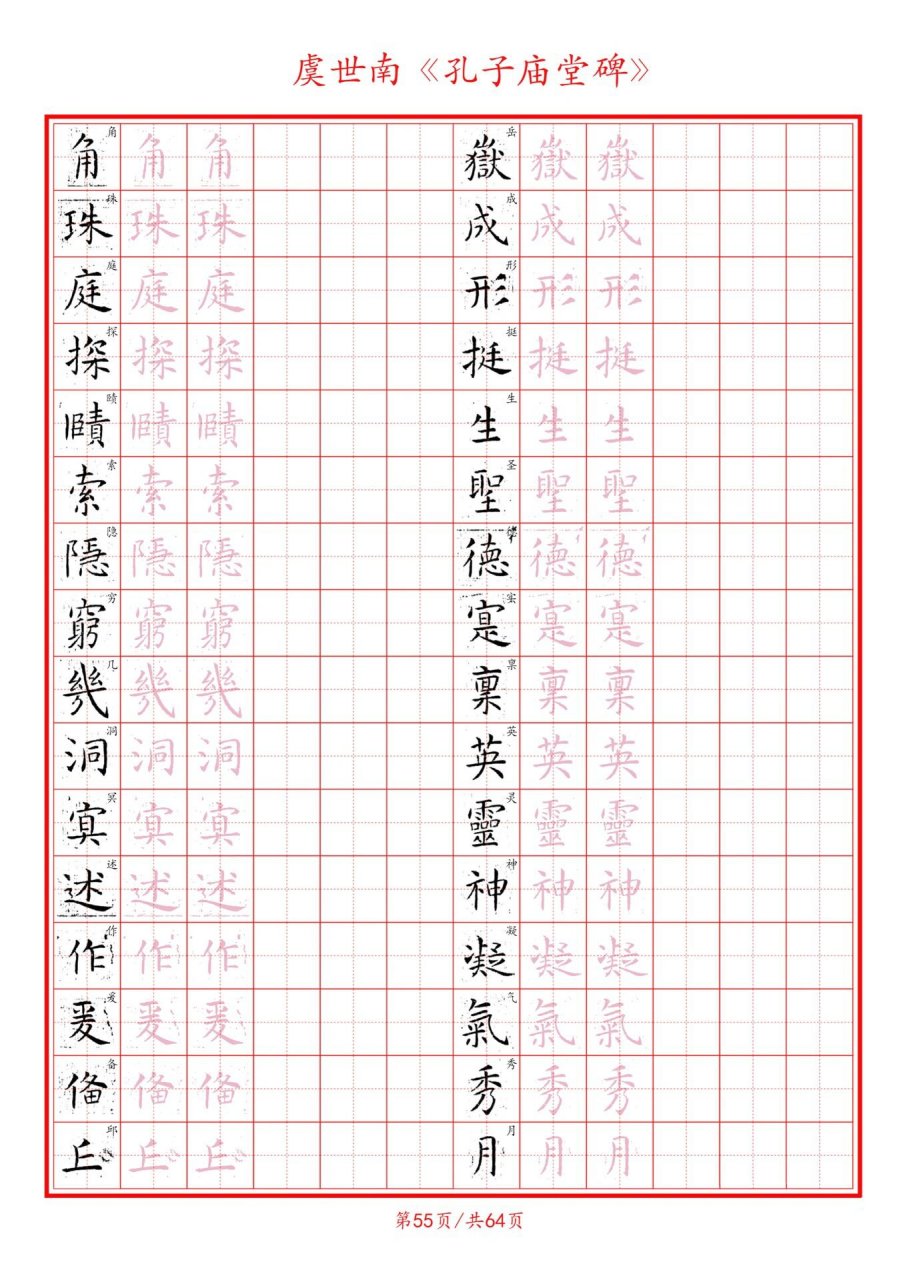 虞世南《孔子庙堂碑》
角 角 角 角 岳 嶽 嶽 嶽
珠 珠 珠 珠 成 成 成 成
庭 庭 庭 庭 形 形 形 形
探 探 探 探 挺 挺 挺 挺
赜 賾 賾 賾 生 生 生 生
索 索 索 索 圣 聖 聖 聖
隐 隱 隱 隱 德 德 德 德
穷 窮 窮 窮 实 寔 寔 寔
几 幾 幾 幾 禀 稟 稟 稟
洞 洞 洞 洞 英 英 英 英
冥 冥 冥 冥 灵 靈 靈 靈
述 述 述 述 神 神 神 神
作 作 作 作 凝 凝 凝 凝
爰 爰 爰 爰 气 氣 氣 氣
备 俻 俻 俻 秀 秀 秀 秀
邱 丘 丘 丘 月 月 月 月
第55页/共64页